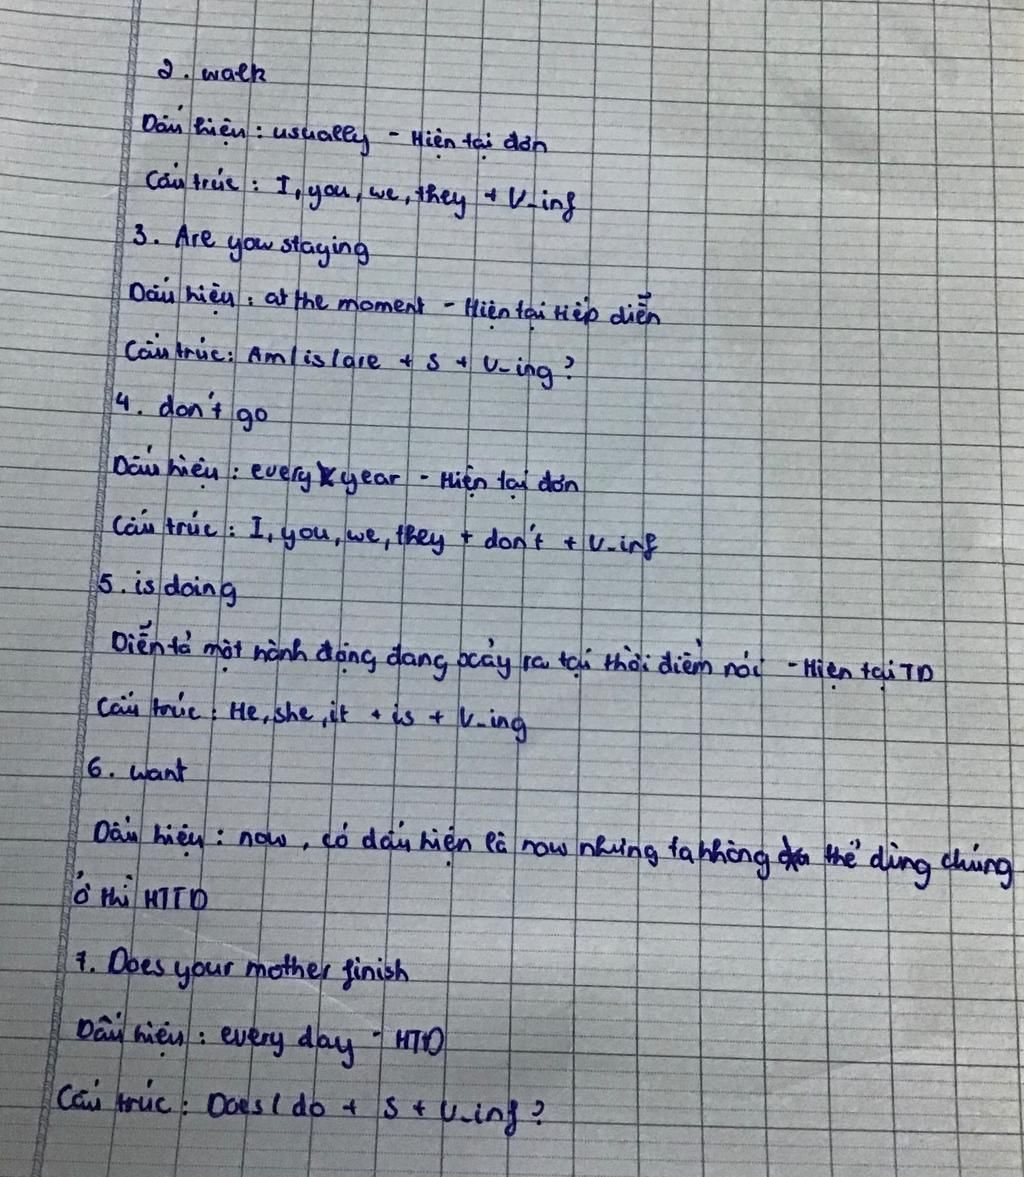 2. walk
Dấu hiệu : usually - Hiện tại đơn
Cấu trúc : I, you, we, they + V_inf
3. Are you staying
Dấu hiệu : at the moment - Hiện tại tiếp diễn
Cấu trúc : Am/is/are + S + V_ing ?
4. don't go
Dấu hiệu : every year - Hiện tại đơn
Cấu trúc : I, you, we, they + don't + V_inf
5. is doing
Diễn tả một hành động đang xảy ra tại thời điểm nói - Hiện tại TD
Cấu trúc : He, she, it + is + V_ing
6. want
Dấu hiệu : now, có dấu hiện là now nhưng ta không thể dùng chúng
ở thì HTTD
7. Does your mother finish
Dấu hiệu : every day - HTĐ
Cấu trúc : Does/do + S + V_inf ?